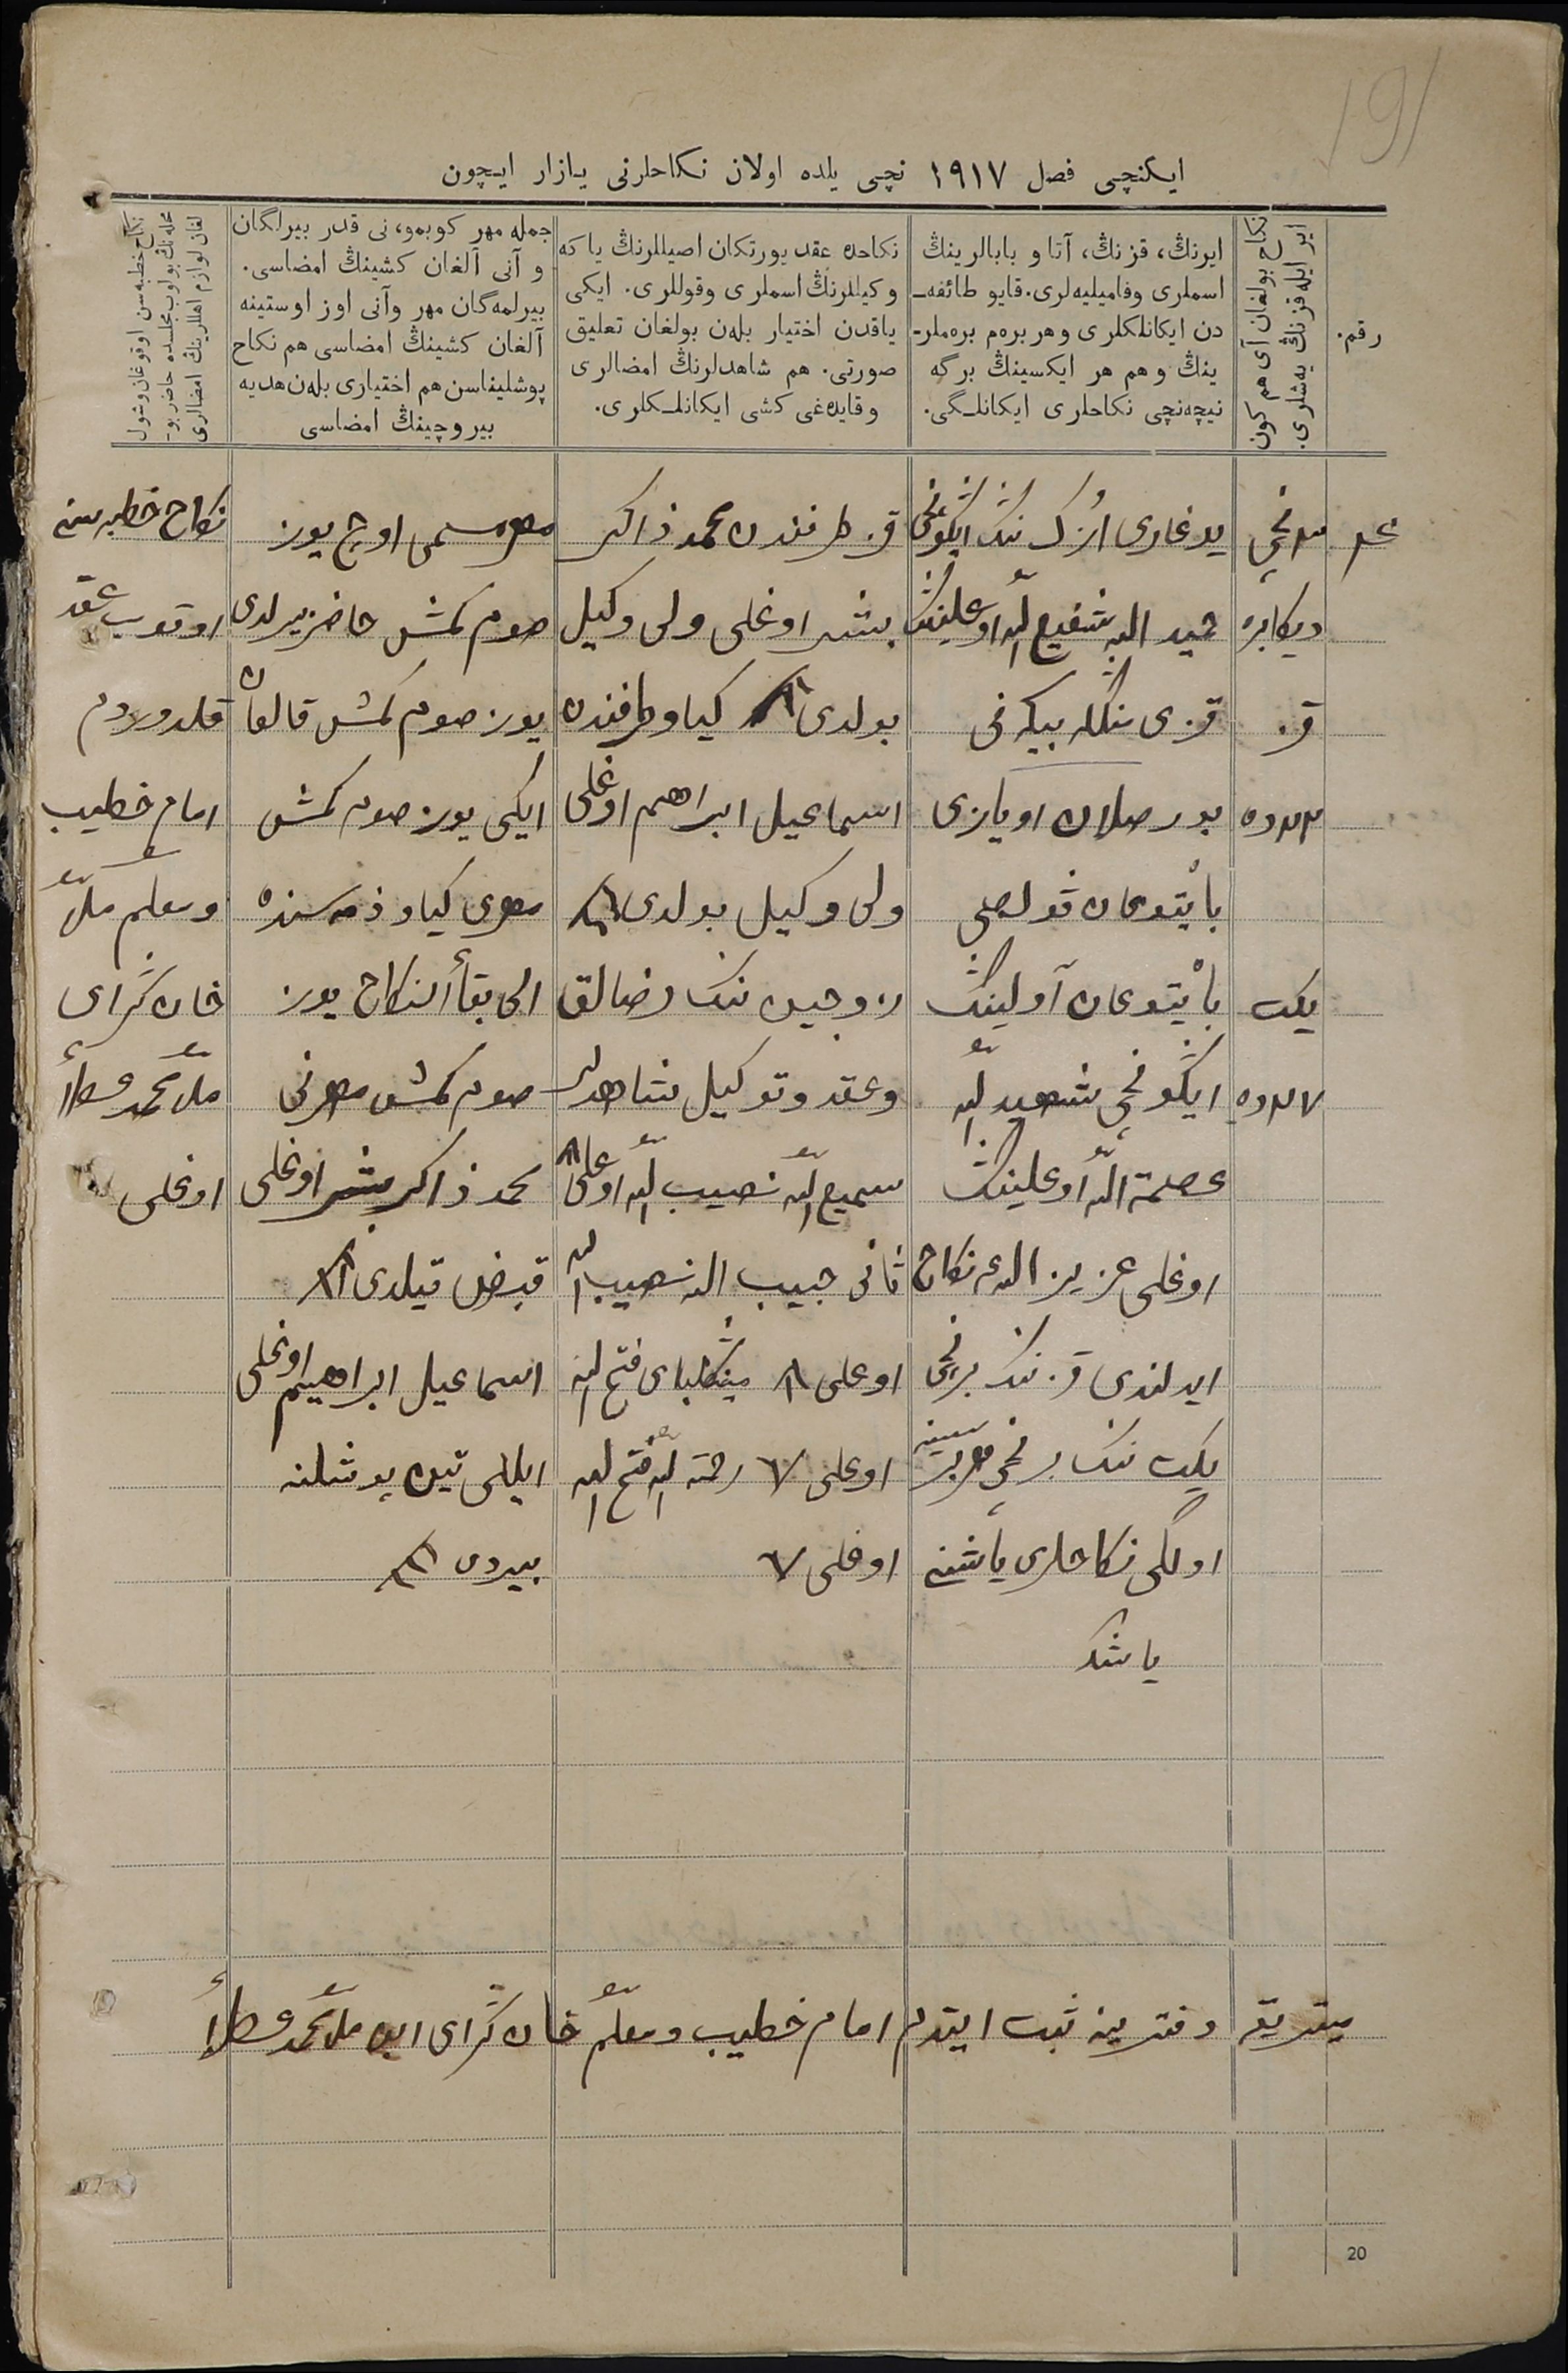 191
ایکنچی فصل ١٩١٧ نچی یلده اولان نکاحلرنی یازار ایچون
رقم.
نکاح بولغان آی هم کون
ایر ایله قزنڭ یه‌شلری.
ایرنڭ، قزنڭ، آتا و بابالرینڭ
اسملری وفامیلیه‌لری. قایو طائفه‌ـ
دن ایکانلکلری وهر بره‌م بره‌ملرـ
ینڭ وهم هر ایکسینڭ برگه
نیچه‌نچی نکاحلری ایکانلـگی.
نکاحده عقد یورتکان اصیللرنڭ یا که
وکیللرنڭ اسملری وقوللری. ایکی
یاقدن اختیار بله‌ن بولغان تعلیق
صورتی. هم شاهدلرنڭ امضالری
وقایده‌غی کشی ایکانلـکلری.
جمله مهر کوبمو، نی قدر بیرلگان
و آنی آلغان کشینڭ امضاسی.
بیرلمه‌گان مهر وآنی اوز اوستینه
آلغان کشینڭ امضاسی هم نکاح
پوشلیناسن هم اختیاری بله‌ن هدیه
بیروچینڭ امضاسی
نکاح خطبه‌سن اوقوغان وشول
محله‌نڭ بولوب مجلسده حاضر بوـ
لغان لوازم اهللرینڭ امضالری
٣ نچی
دیکابره
قز
٢٣ ده
یکت
٢٧ ده
یوغاری اُزک ننک
حمید الله شفیع الله اوغلیننک
قزی منکله بیکه‌نی
بورصلان اویازی
بایتوغان ڤولصی
بایتوغان آولیننک
شهید الله
عصمة الله اوغلیننک
اوغلی عزیز الله‌غه نکاح
ایدلندی قز ننک برنچی
یکت ننک برنچی
اولگی نکاحلری یاشینه
یاشد
قز طرفندن محمد ذاکر
بشر اوغلی ولی وکیل
بولدی کیاو طرفندن
اسماعیل ابراهیم اوغلی
ولی وکیل بولدی
زوجین ننک رضالق
وعقد وتوکیل شاهدلر
سمیع الله نصیب الله اوغلی
ثانی حبیب الله نصیب الله
اوغلی مینکلبای فتح الله
اوغلی رحمة الله فتح الله
اوغلی
مهر مسمی اوچ یوز
صوم کمش حاضر بیرلدی
یوز صوم کمش قالغان
ایکی یوز صوم کمش
مهری کیاو ذمه‌سنده
الی بقأ النکاح یوز
صوم کمش مهرنی
محمد ذاکر بشر اوغلی
قبض قیلدی
اسماعیل ابراهیم اوغلی
ایللی تین پوشلنه
بیردی
نکاح خطبه‌سنی
اوقوب عقد
قلدوردم
امام خطیب
ومعلم ملا
خان کرای
ملا محمد عطاأ
اوغلی
میتریقه دفترینه ثبت ایتدم امام خطیب ومعلم خان کرای ابن ملا محمد عطاأ
20